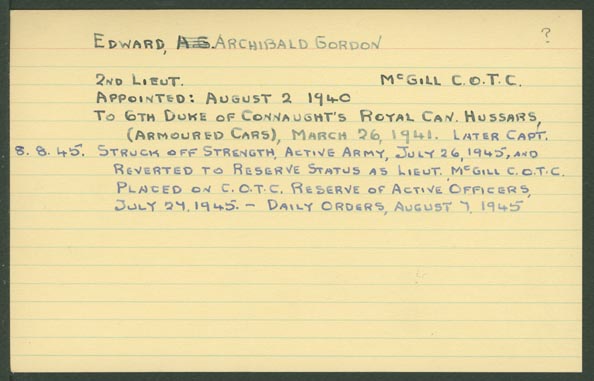 EDWARD, A.G. ARCHIBALD GORDON ?
2ND LIEUT. McGILL C.O.T.C.
APPOINTED: AUGUST 2 1940
TO 6TH DUKE OF CONNAUGHT'S ROYAL CAN. HUSSARS,
(ARMOURED CARS), MARCH 26, 1941. LATER CAPT.
8.8.45. STRUCK OFF STRENGTH, ACTIVE ARMY, JULY 26, 1945, AND
REVERTED TO RESERVE STATUS AS LIEUT. McGILL C.O.T.C.
PLACED ON C.O.T.C. RESERVE OF ACTIVE OFFICERS,
JULY 27, 1945. - DAILY ORDERS, AUGUST 7, 1945